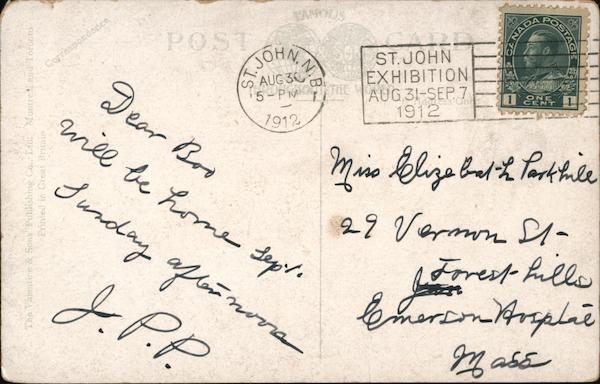 FAMOUS
POST CARD
Correspondence
ST. JOHN, N.B.
AUG 30
5-PM
1912
ST. JOHN
EXHIBITION
AUG 31-SEP. 7
1912
CANADA POSTAGE
1 ONE CENT 1
Printed in Great Britain
Dear Boo
will be home Sep. 1.
Sunday afternoon
J. P. P.
Miss Elizabeth Parkhill
29 Vernon St-
Forest-hills
Emerson Hosptal
Mass